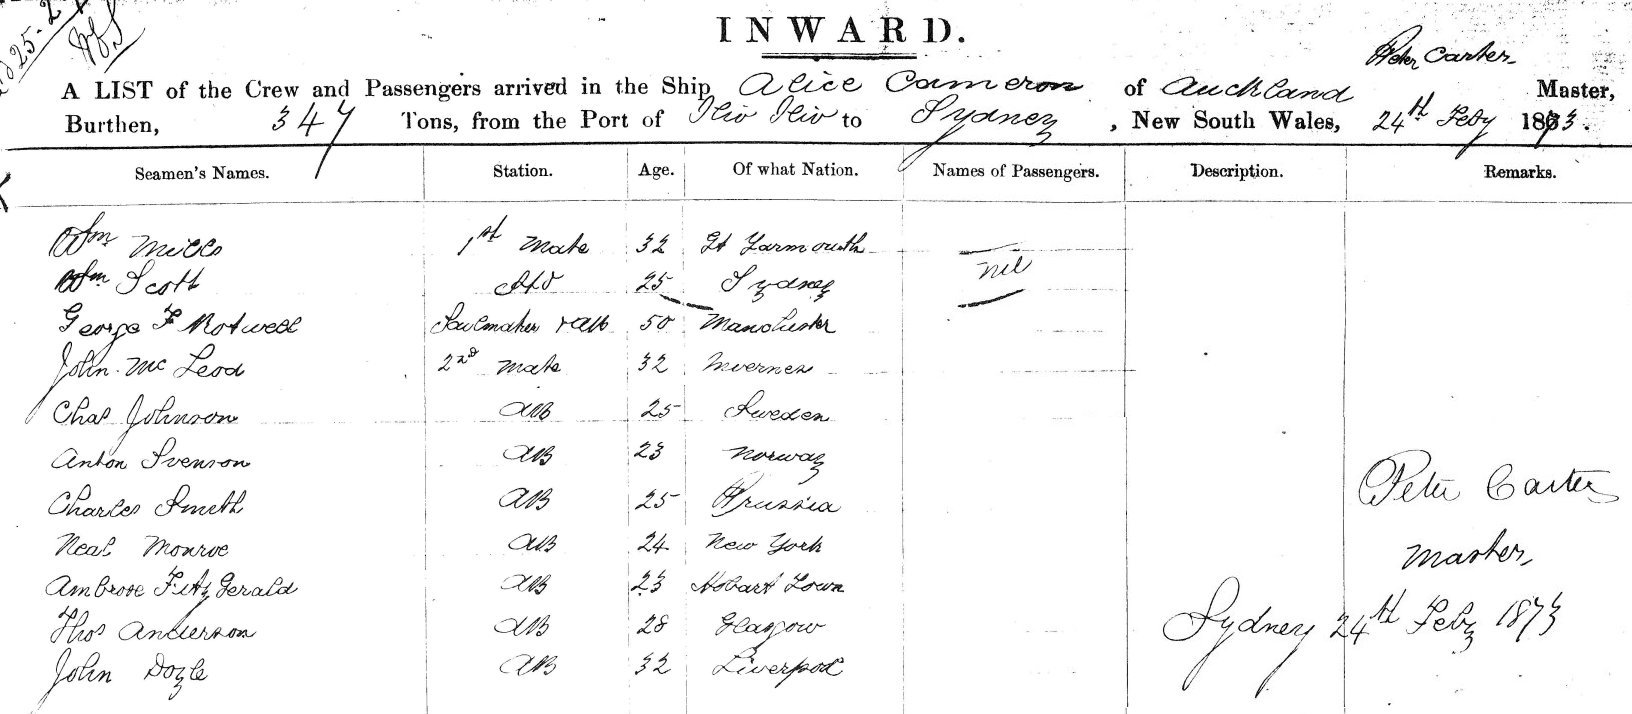 INWARD.
Peter Carter
A LIST of the Crew and Passengers arrived in the Ship Alice Cameron of Auckland Master,
Burthen, 347 Tons, from the Port of to Sydney, New South Wales, 24th Feby 1873.
Seamen's Names. Station. Age. Of what Nation. Names of Passengers. Description. Remarks.
Wm Mills 1st Mate 32 Gt Yarmouth
Wm Scott 25 Sydney nil
George F Rotwell Sailmaker & AB 50 Manchester
John McLeod 2nd Mate 32 Inverness
Chas Johnson AB 25 Sweden
Anton Svenson AB 23 Norway
Charles Smith AB 25 Prussia
Peter Carter
Neal Monroe AB 24 New York
Master,
Ambrose FitzGerald AB 23 Hobart Town
Thos Anderson AB 28 Glasgow
Sydney 24th Feby 1873
John Doyle AB 32 Liverpool